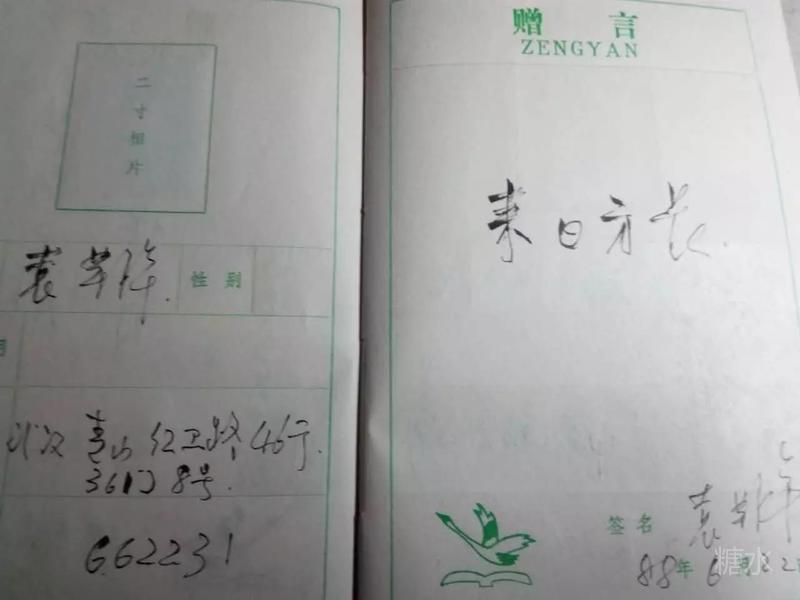 二寸相片
袁
性别
武汉青山红卫路46号
36门8号.
662231
赠言
ZENGYAN
来日方长.
签名 袁
88年6月2
糖水